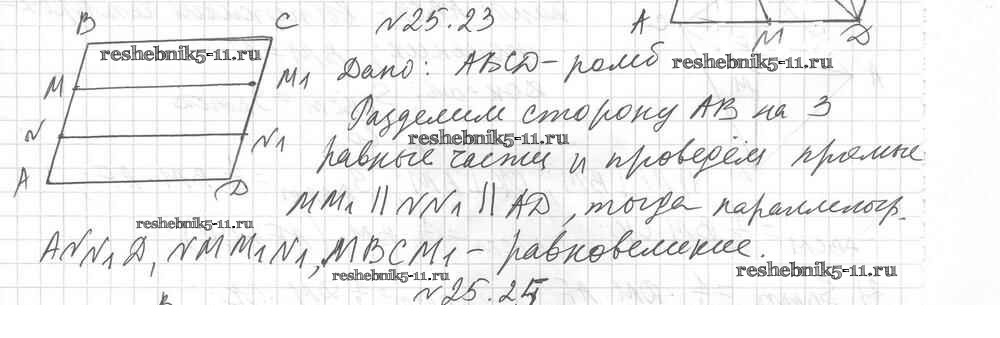 B C
№25.23
A M D
reshebnik5-11.ru
M M1
Дано: ABCD - ромб
reshebnik5-11.ru
Разделим сторону AB на 3
reshebnik5-11.ru
N N1
равные части и проведём прямые
A D
MM1 || NN1 || AD, тогда параллелогр.
reshebnik5-11.ru
ANN1D, NMM1N1, MBCM1 - равновеликие.
reshebnik5-11.ru
reshebnik5-11.ru
B
№25.25